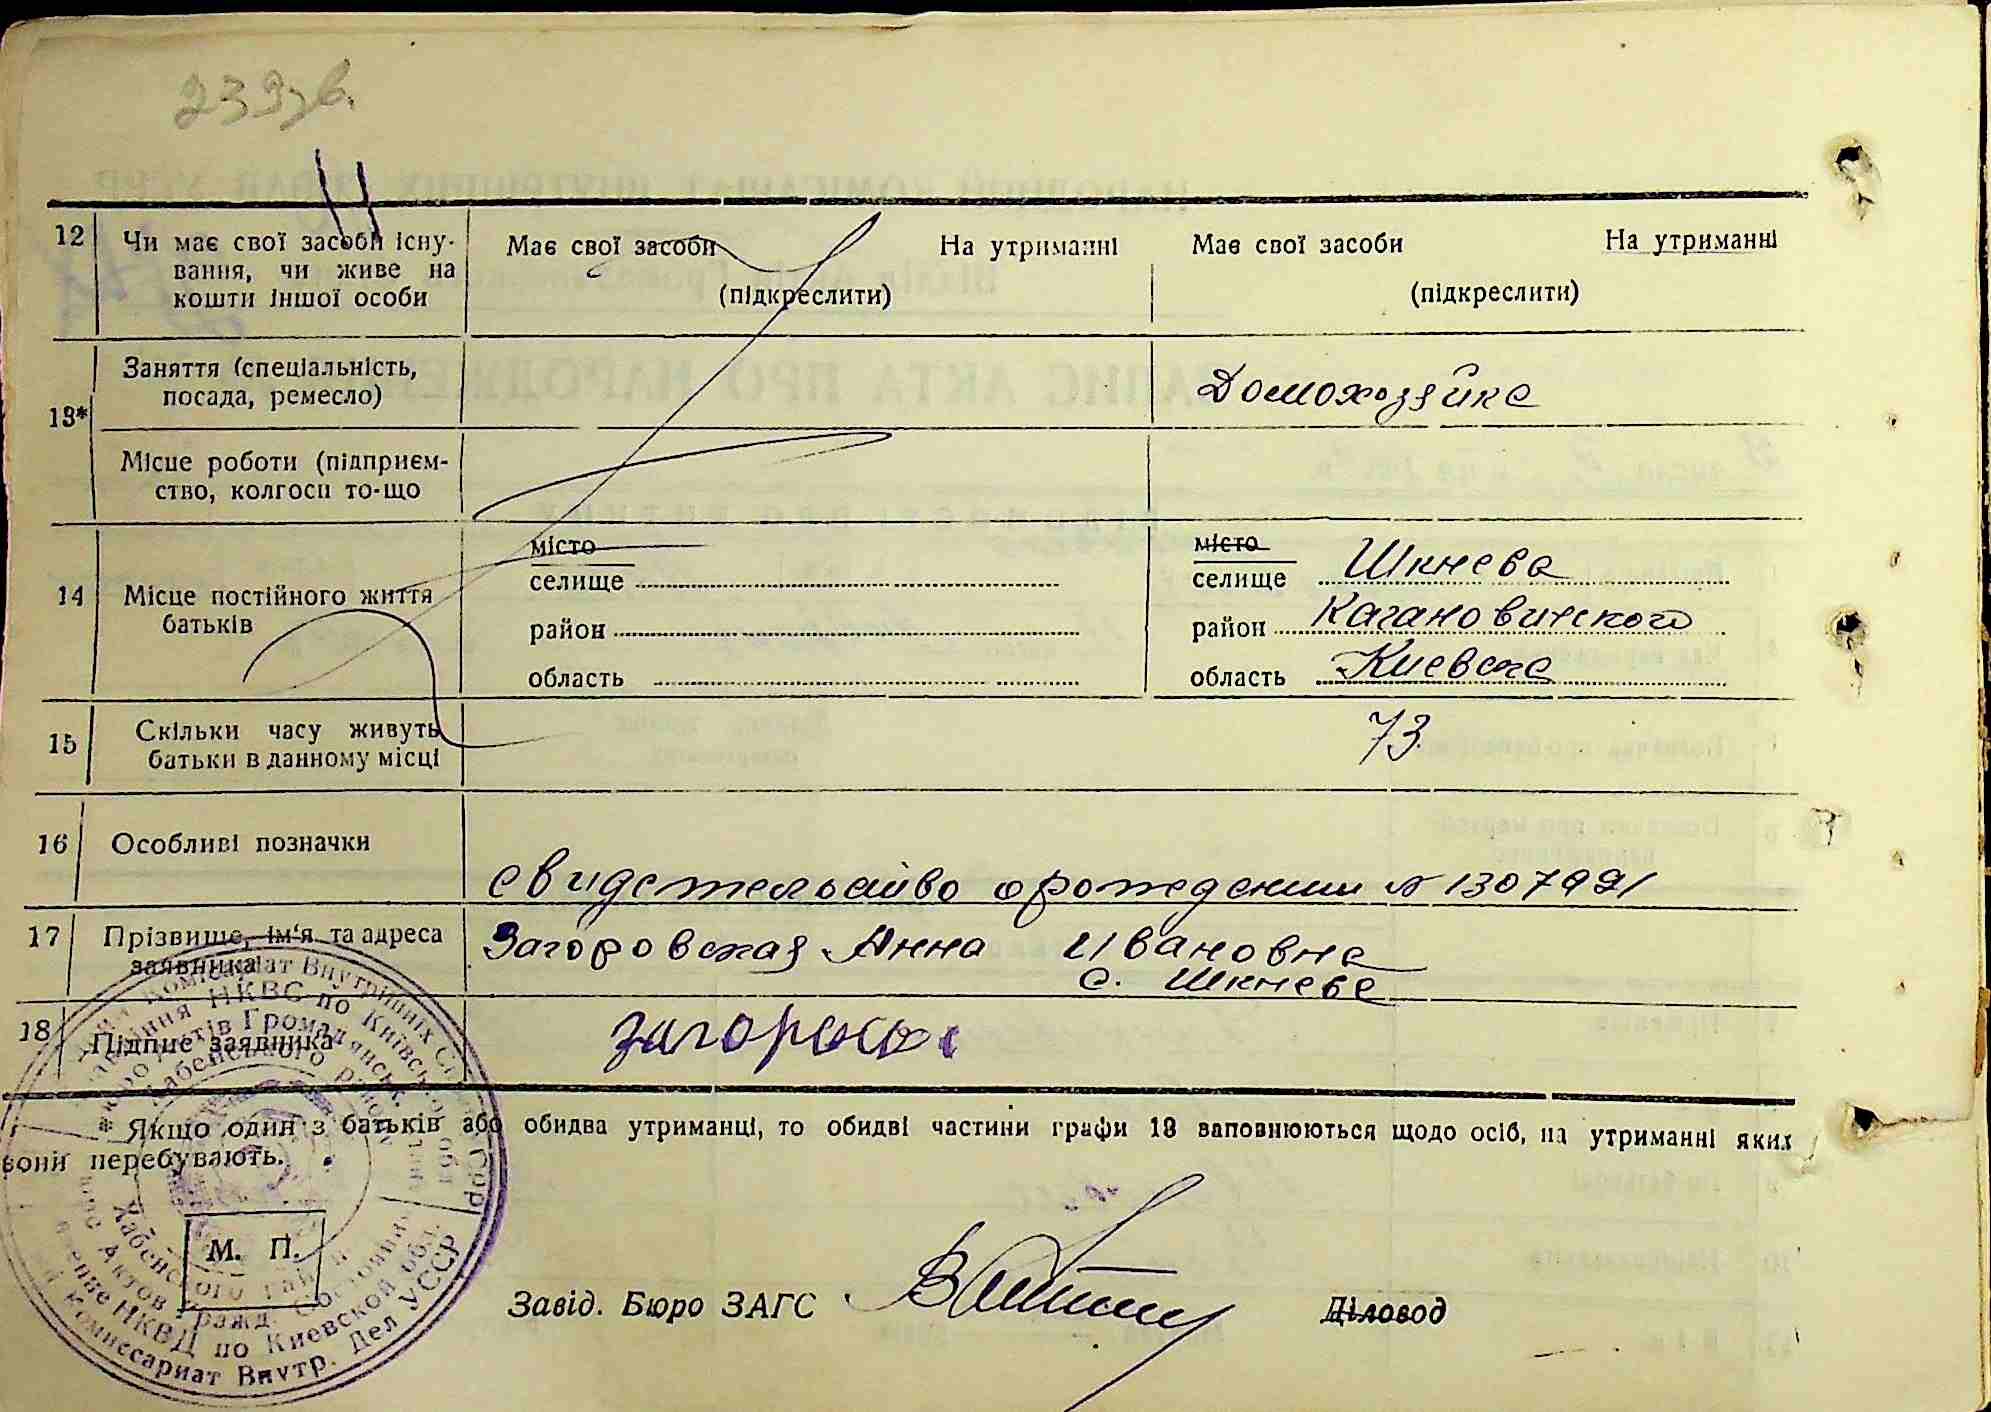 239зв.
12 Чи має свої засоби існу-
вання, чи живе на
кошти іншої особи
Має свої засоби На утриманні
(підкреслити)
Має свої засоби На утриманні
(підкреслити)
13*
Заняття (спеціальність,
посада, ремесло)
Домохозяйка
Місце роботи (підприєм-
ство, колгосп то-що
14 Місце постійного життя
батьків
місто
селище
район
область
місто
селище Шкнева
район Кагановичского
область Киевска
15 Скільки часу живуть
батьки в данному місці
73
16 Особливі позначки
свидетельство о рождении № 1307991
17 Прізвище, ім'я та адреса
заявника
Загоровская Анна Ивановна
с. Шкнева
18 Підпис заявника
* Якщо один з батьків або обидва утриманці, то обидві частини графи 13 заповнюються щодо осіб, на утриманні яких
вони перебувають.
М. П.
Завід. Бюро ЗАГС
Діловод
Комісаріат Внутрішніх Справ
НКВС по Київській обл.
Актів Громадянськ.
Хабенского рай
Актов Гражд. Состояния
НКВД по Киевской обл.
Комиссариат Внутр. Дел УССР